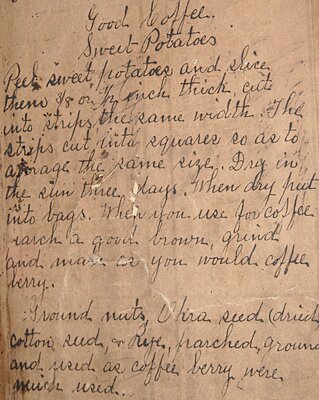 Good Coffee.
Sweet Potatoes
Peel sweet potatoes and slice
them 1/3 or 1/2 inch thick, cut
into strips the same width. The
strips cut into squares so as to
average the same size. Dry in
the sun three days. When dry put
into bags. When you use for coffee
parch a good brown, grind
and make as you would coffee
berry.
Ground nutz, Okra seed (dried
cotton seed, & Rye, parched, ground
and used as coffee berry were
much used.